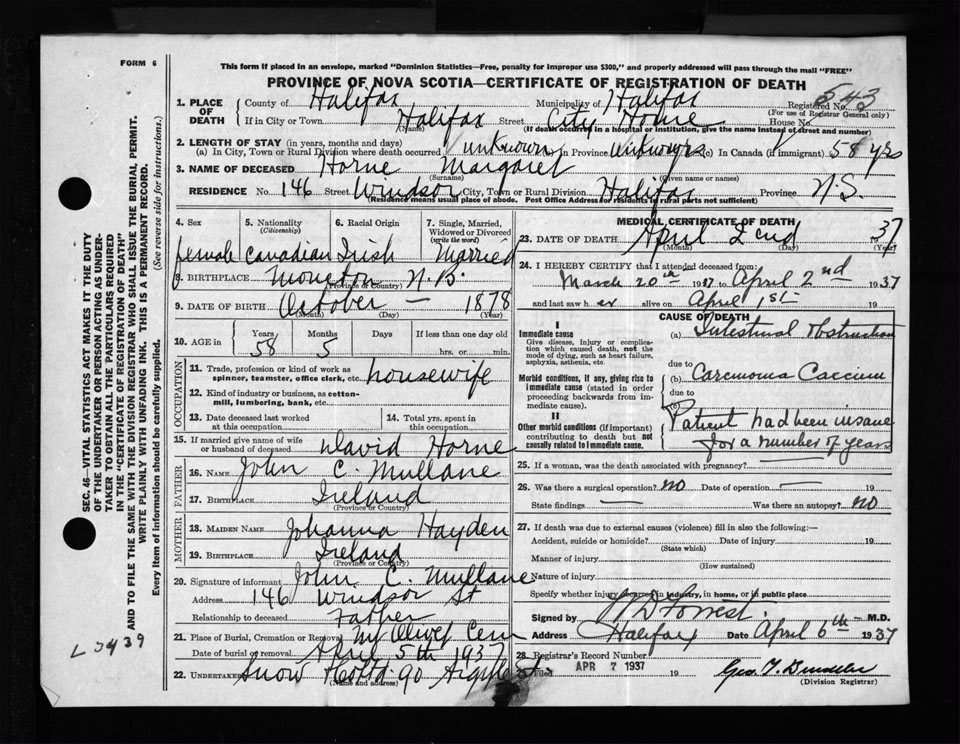 FORM 6
This form if placed in an envelope, marked "Dominion Statistics—Free, penalty for improper use $300," and properly addressed will pass through the mail "FREE"
PROVINCE OF NOVA SCOTIA—CERTIFICATE OF REGISTRATION OF DEATH
1. PLACE OF DEATH County of Halifax Municipality of Halifax Registered No. 543
(For use of Registrar General only)
If in City or Town Halifax Street City Home House No.
(Name) (If death occurred in a hospital or institution, give the name instead of street and number)
2. LENGTH OF STAY (in years, months and days)
(a) In City, Town or Rural Division where death occurred unknown in Province (c) In Canada (if immigrant) 58 yrs
3. NAME OF DECEASED Horne Margaret
(Surname) (Given name or names)
RESIDENCE No. 146 Street Windsor City, Town or Rural Division Halifax Province N.S.
(Residence means usual place of abode. Post Office Address for residents in rural parts not sufficient)
4. Sex 5. Nationality (Citizenship) 6. Racial Origin 7. Single, Married, Widowed or Divorced (write the word)
female Canadian Irish Married
8. BIRTHPLACE Moncton N.B.
(Province or Country)
9. DATE OF BIRTH October — 1878
(Month) (Day) (Year)
10. AGE in Years Months Days If less than one day old
58 5 hrs. or min.
OCCUPATION
11. Trade, profession or kind of work as spinner, teamster, office clerk, etc. housewife
12. Kind of industry or business, as cotton-mill, lumbering, bank, etc.
13. Date deceased last worked at this occupation
14. Total yrs. spent in this occupation
15. If married give name of wife or husband of deceased David Horne
FATHER
16. NAME John C. Mullane
17. BIRTHPLACE Ireland
(Province or Country)
MOTHER
18. MAIDEN NAME Johanna Hayden
19. BIRTHPLACE Ireland
(Province or Country)
20. Signature of informant John C. Mullane
Address 146 Windsor St
Relationship to deceased Father
21. Place of Burial, Cremation or Removal Mt Olivet Cem
Date of burial or removal April 5th 1937
22. UNDERTAKER Snow & Co Ltd 90 Argyle St.
(Name and address)
MEDICAL CERTIFICATE OF DEATH
23. DATE OF DEATH April 2nd 1937
(Month) (Day) (Year)
24. I HEREBY CERTIFY that I attended deceased from:
March 20th 1937 to April 2nd 1937
and last saw her alive on April 1st 19
CAUSE OF DEATH
I
Immediate cause
Give disease, injury or complication which caused death, not the mode of dying, such as heart failure, asphyxia, asthenia, etc.
(a) Intestinal obstruction
due to
Morbid conditions, if any, giving rise to immediate cause (stated in order proceeding backwards from immediate cause).
(b) Carcinoma Caecum
due to
(c)
II
Other morbid conditions (if important) contributing to death but not causally related to immediate cause.
Patient had been insane
for a number of years
25. If a woman, was the death associated with pregnancy? —
26. Was there a surgical operation? no Date of operation — 19
State findings — Was there an autopsy? no
27. If death was due to external causes (violence) fill in also the following:—
Accident, suicide or homicide? Date of injury 19
(State which)
Manner of injury
(How sustained)
Nature of injury
Specify whether injury occurred in industry, in home, or in public place
Signed by Forrest M.D.
Address Halifax Date April 6th 1937
28. Registrar's Record Number
Filed APR 7 1937 19
(Division Registrar)
SEC. 46—VITAL STATISTICS ACT MAKES IT THE DUTY OF THE UNDERTAKER OR PERSON ACTING AS UNDERTAKER TO OBTAIN ALL THE PARTICULARS REQUIRED IN THE "CERTIFICATE OF REGISTRATION OF DEATH" AND TO FILE THE SAME WITH THE DIVISION REGISTRAR WHO SHALL ISSUE THE BURIAL PERMIT.
WRITE PLAINLY WITH UNFADING INK. THIS IS A PERMANENT RECORD.
Every item of Information should be carefully supplied. (See reverse side for instructions.)